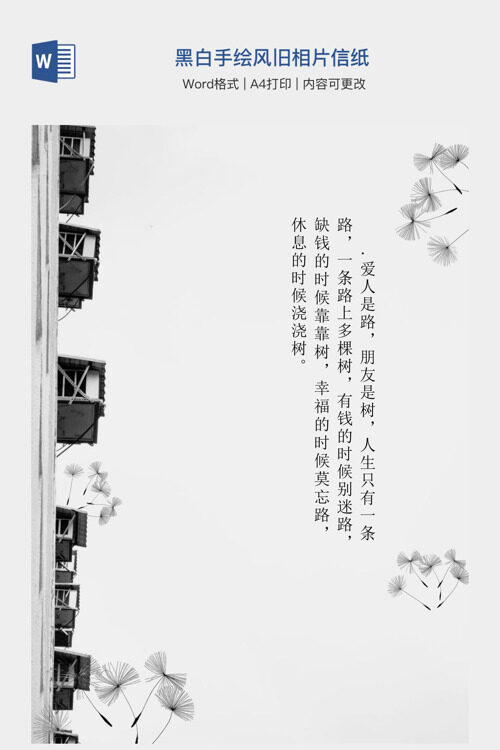 W
黑白手绘风旧相片信纸
Word格式 | A4打印 | 内容可更改
.爱人是路，朋友是树，人生只有一条
路，一条路上多棵树，有钱的时候别迷路，
缺钱的时候靠靠树，幸福的时候莫忘路，
休息的时候浇浇树。